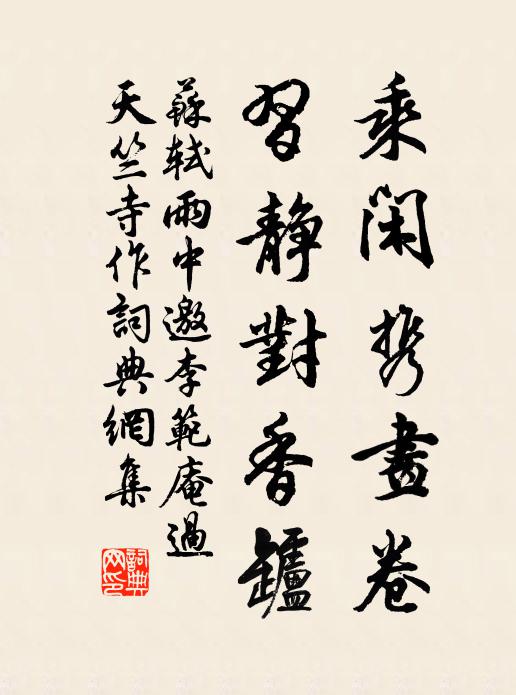 乘閑携畫卷
習靜對香鑪
蘇軾雨中邀李範庵過
天竺寺作詞典網集
詞典
网印